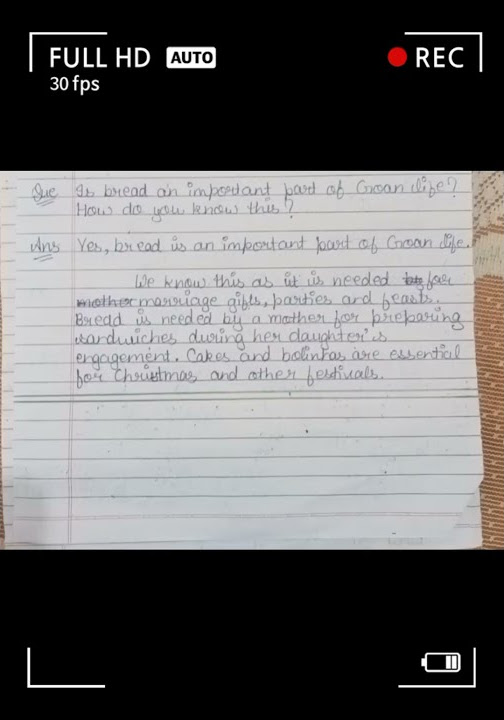 FULL HD AUTO
REC
30 fps
Que Is bread an important part of Goan life?
How do you know this?
Ans Yes, bread is an important part of Goan life.
We know this as it is needed for
mother marriage gifts, parties and feasts.
Bredd is needed by a mother for preparing
sandwiches during her daughter's
engagement. Cakes and bolinhas are essential
for Christmas and other festivals.